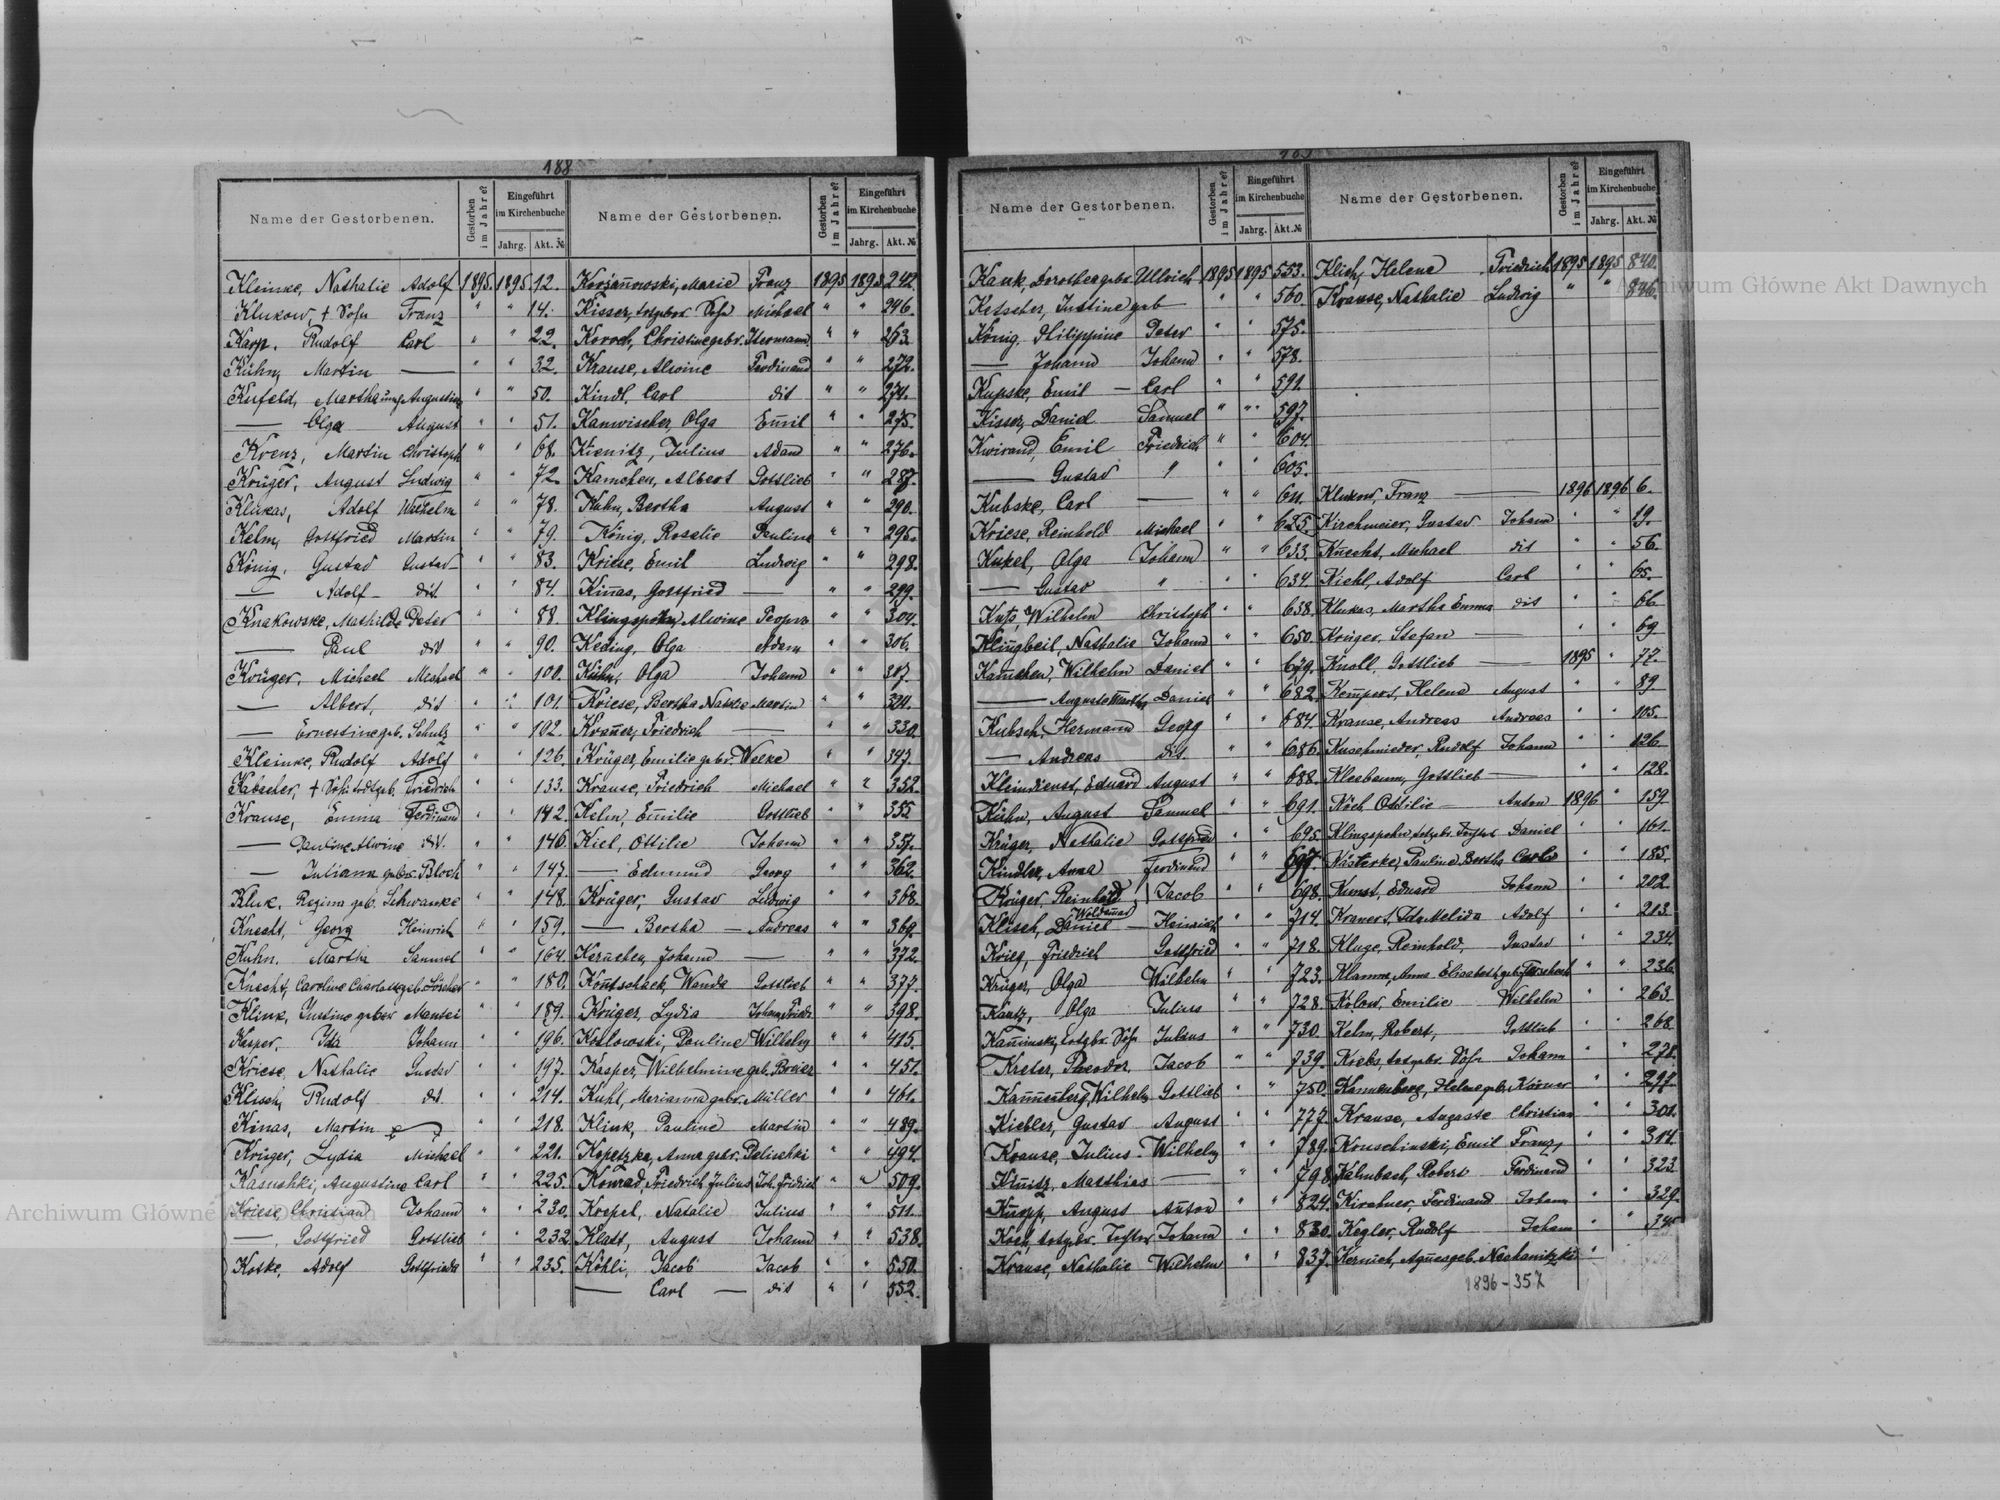 188
Name der Gestorbenen.
Gestorben im Jahre?
Eingeführt im Kirchenbuche
Jahrg. Akt. №
Name der Gestorbenen.
Gestorben im Jahre?
Eingeführt im Kirchenbuche
Jahrg. Akt. №
Kleinke, Nathalie Adolf 1895. 1895. 12.
Klukow, + Sohn Franz " " 14.
Karp, Rudolf Carl " " 22.
Kühn, Martin — " " 32.
Kufeld, Martha Augustine " " 50.
— Olga August " " 51.
Krenz, Martin Christoph " " 68.
Krüger, August Ludwig " " 72.
Klukas, Adolf Wilhelm " " 78.
Kelm, Gottfried Martin " " 79.
König, Gustav Gustav " " 83.
— Adolf dit " " 84.
Knakowske, Mathilde Peter " " 88.
— Paul dit " " 90.
Krüger, Michael Michael " " 100.
— Albert, dit " " 101.
— Ernestine geb. Schulz " " 102.
Kleinke, Rudolf Adolf " " 126.
Kabscher, + Sohn todtgeb. Friedrich " " 133.
Krause, Emma Ferdinand " " 142.
— Pauline Alwine dit. " " 146.
— Juliana gebor. Bloch " " 147.
Kluk, Regina geb. Schwanke " " 148.
Knecht, Georg Heinrich " " 159.
Kuhn, Martha Samuel " " 164.
Knecht, Caroline Charlotte geb. Löscher " " 180.
Klink, Justine gebor Mantei " " 189.
Kasper, Ida Johann " " 196.
Kriese, Nathalie Gustav " " 197.
Klisch, Rudolf dit " " 214.
Kinas, Martin " " 218.
Krüger, Lydia Michael " " 221.
Kasushki, Augustine Carl " " 225.
Kriese, Christian Johann " " 230.
— Gottfried Gottlieb " " 232
Koske, Adolf Gottfried " " 235.
Korzannowski, Marie Franz 1895 1895. 242.
Kisser, totgebor. Sohn Michael " " 246.
Koroch, Christine gebr. Hermann " " 263.
Krause, Alwine Ferdinand " " 272.
Kindl, Carl dit " " 274.
Kanwischer, Olga Emil " " 275.
Kienitz, Julius Adam " " 276.
Kamchen, Albert Gottlieb " " 287.
Kuhn, Bertha August " " 290.
König, Rosalie Pauline " " 295.
Kriese, Emil Ludwig " " 298.
Kinnas, Gottfried — " " 299.
Klingspohn, Alwine " " 304.
Keding, Olga Adam " " 306.
Kühn, Olga Johann " " 317.
Kriese, Bertha Natalie Martin " " 324.
Kraner, Friedrich — " " 330.
Krüger, Emilie gebr. Welke " " 347.
Krause, Friedrich Michael " " 352.
Kelm, Emilie Gottlieb " " 355
Kiel, Ottilie Johann " " 357.
— Edmund Georg " " 362.
Krüger, Gustav Ludwig " " 368.
— Bertha — Andreas " " 369.
Kernchen, Johann — " " 372.
Kontschack, Wanda Gottlieb " " 377.
Krüger, Lydia Johann Friedr " " 398.
Kotlowski, Pauline Wilhelm " " 415.
Kasper, Wilhelmine geb. Breier " " 451.
Kuhl, Merianna gebr. Müller " " 461.
Klink, Pauline Martin " " 489.
Kopetzka, Anna gebr. Pelischki " " 494.
Konrad, Friedrich Julius Joh. Fridrich " " 509.
Krepel, Natalie Julius " " 511.
Klatt, August Johann " " 538.
Köhli, Jacob Jacob " " 550.
— Carl — dit " " 552.
Name der Gestorbenen.
Gestorben im Jahre?
Eingeführt im Kirchenbuche
Jahrg. Akt. №
Name der Gestorbenen.
Gestorben im Jahre?
Eingeführt im Kirchenbuche
Jahrg. Akt. №
Kauk, Dorothea gebr. Ullrich 1895 1895 553.
Ketscher, Justine geb — " " 560.
König, Philippine Peter " " 575.
— Johann Johann " " 578.
Kupske, Emil — Carl " " 591.
Kisser, Daniel Samuel " " 597.
Kwirand, Emil Friedrich " " 604.
— Gustav " " " 605.
Kubske, Carl — " " 611.
Kriese, Reinhold Michael " " 625.
Kukel, Olga Johann " " 633.
— Gustav " " " 634.
Kutz, Wilhelm Christoph " " 638.
Klingbeil, Nathalie Johann " " 650.
Kamchen, Wilhelm Daniel " " 679.
— Auguste Martha Daniel " " 682.
Kubsch, Hermann Georg " " 684.
— Andreas dit. " " 686.
Kleindienst, Eduard August " " 688.
Kühn, August Samuel " " 691.
Krüger, Nathalie Gottfried " " 695.
Kindler, Anna Ferdinand " " 697.
Krüger, Reinhold Woldemar Jacob " " 698.
Klisch, Daniel — Heinrich " " 714.
Krieg, Friedrich Gottfried " " 718.
Krüger, Olga Wilhelm " " 723.
Kautz, Olga Julius " " 728.
Kaminski, totgebr. Sohn Julius " " 730.
Kreter, Theodor, Jacob " " 739.
Kannenberg, Wilhelm Gottlieb " " 750.
Kiebler, Gustav August " " 777.
Krause, Julius Wilhelm " " 789.
Knitz, Matthias — " " 798.
Knopp, August Anton " " 824.
Koch, totgebr. Tochter Johann " " 830.
Krause, Nathalie Wilhelm " " 837.
Klich, Helene Friedrich 1895 1895 840.
Krause, Nathalie Ludwig " " 846.
Klukow, Franz — 1896 1896 6.
Kirchmeier, Gustav Johann " " 19.
Knecht, Michael dit " " 56.
Kiehl, Adolf Carl " " 65.
Klukas, Martha Emma dit " " 66
Krüger, Stefan — " " 69
Knoll, Gottlieb — 1895 " 77.
Kempert, Helene August " " 89
Krause, Andreas Andreas " " 105.
Kuschmieder, Rudolf Johann " " 126
Kleebaum, Gottlieb — " " 128.
Koch, Ottilie — Anton 1896 " 159
Klingspohn, totgebr. Tochter Daniel " " 161.
Kästerke, Pauline Bertha Carl " " 185.
Kunst, Eduard Johann " " 202
Kranert, Ida Melida Adolf " " 213.
Kluge, Reinhold, Gustav " " 234.
Klamm, Anna Elisabeth geb. " " 236.
Kolow, Emilie Wilhelm " " 263.
Kelm, Robert, Gottlieb " " 268
Krebs, totgebr. Sohn Johann " " 278.
Kannenberg, Helene geb. Körner " " 297.
Krause, Auguste Christian " " 301.
Kruschinski, Emil Franz, " " 314.
Kalmbach, Robert Ferdinand " " 323
Kirchner, Ferdinand Johann " " 329.
Kegler, Rudolf Johann " " 345
Kernich, Agnes geb. Nechanitzki "
1896 - 357
Archiwum Główne Akt Dawnych
Archiwum Główne Akt Dawnych